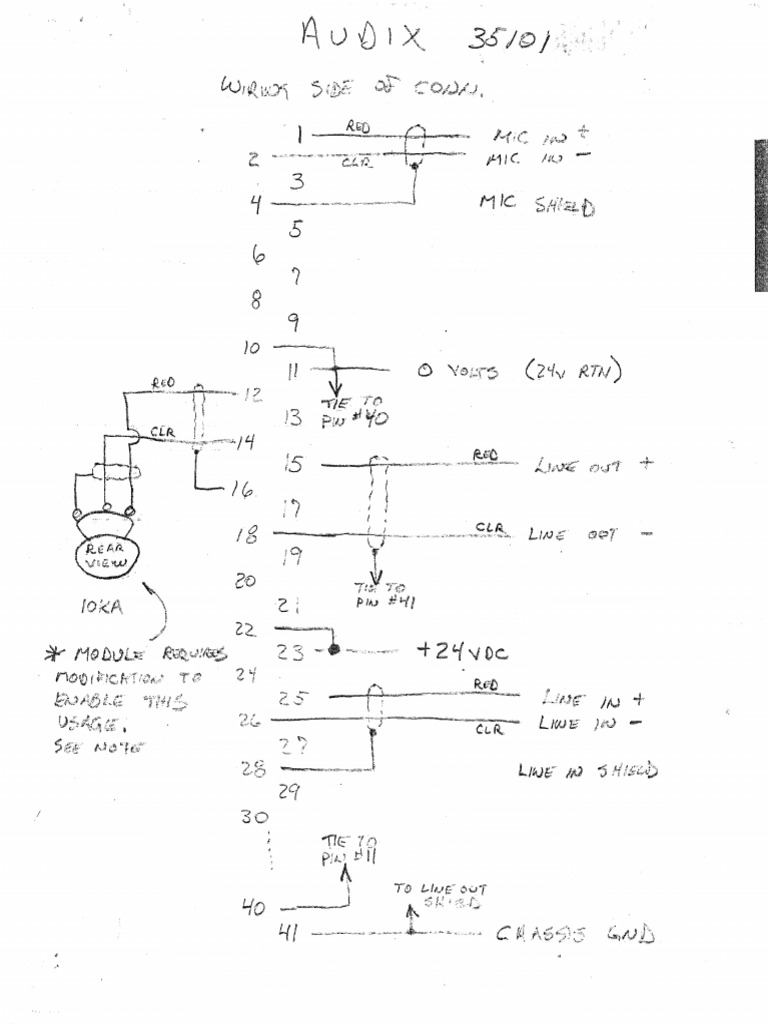 AUDIX 35101
WIRING SIDE OF CONN.
1 RED MIC IN +
2 CLR MIC IN -
3
4 MIC SHIELD
5
6
7
8
9
10
11 0 VOLTS (24V RTN)
TIE TO
PIN #40
RED 12
13
CLR 14
15 RED LINE OUT +
16
17
18 CLR LINE OUT -
19
REAR
VIEW
10KA
20
TIE TO
PIN #41
21
22
23 +24VDC
* MODULE REQUIRES
MODIFICATION TO
ENABLE THIS
USAGE.
SEE NOTE
24
25 RED LINE IN +
26 CLR LINE IN -
27
28 LINE IN SHIELD
29
30
TIE TO
PIN #11
40
TO LINE OUT
SHIELD
41 CHASSIS GND